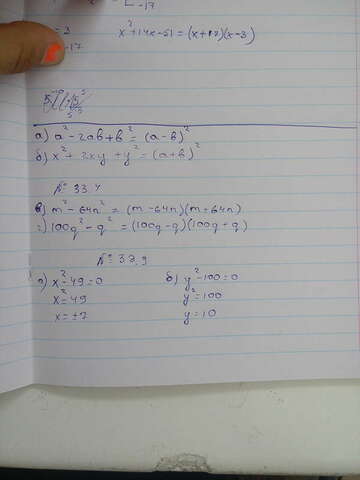 -17
= 3 x² + 14x - 51 = (x + 17)(x - 3)
-17
а) a² - 2ab + b² = (a - b)²
б) x² + 2xy + y² = (a + b)²
№ 33.4
в) m² - 64n² = (m - 64n)(m + 64n)
г) 100g² - q² = (100g - q)(100g + q)
№ 33.9
а) x² - 49 = 0 б) y² - 100 = 0
x² = 49 y² = 100
x = ±7 y = 10